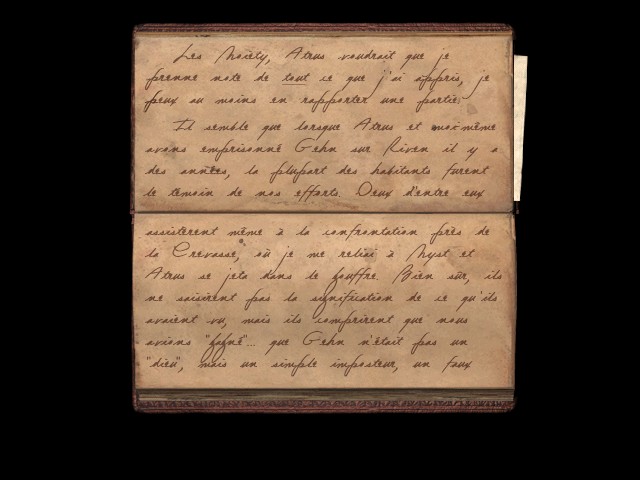 Les Moiety, Atrus voudrait que je
prenne note de tout ce que j'ai appris, je
peux au moins en rapporter une partie.
Il semble que lorsque Atrus et moi-même
avons emprisonné Gehn sur Riven il y a
des années, la plupart des habitants furent
le témoin de nos efforts. Deux d'entre eux
assistèrent même à la confrontation près de
la Crevasse, où je me reliai à Myst et
Atrus se jeta dans le gouffre. Bien sûr, ils
ne saisirent pas la signification de ce qu'ils
avaient vu, mais ils comprirent que nous
avions "gagné"... que Gehn n'était pas un
"dieu", mais un simple imposteur, un faux